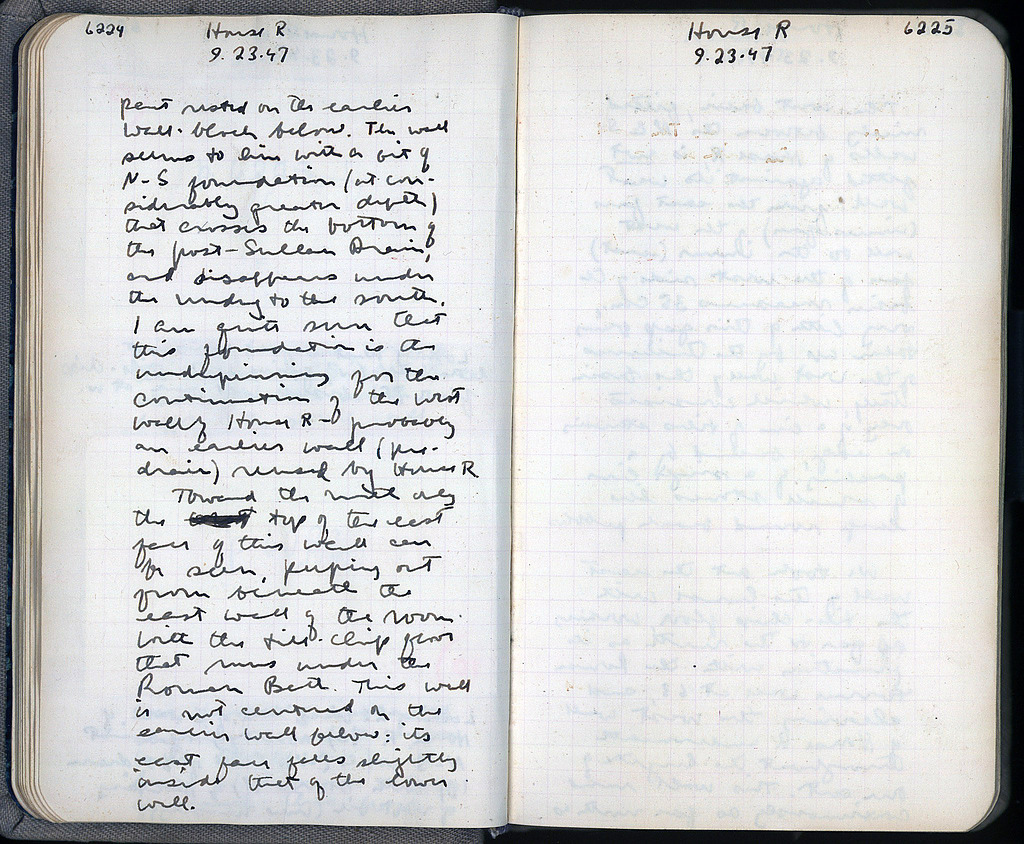 6224
House R
9.23.47
part rested on the earlier
wall-block below. The wall
seems to line with a bit of
N-S foundation (at con-
siderably greater depth)
that crosses the bottom of
the post-Sullan Drain,
and disappears under
the unding to the south.
I am quite sure that
this foundation is the
underpinning for the
continuation of the west
wall of House R - probably
an earlier wall (pre-
drain) reused by House R
Toward the north only
the top of the east
face of this wall can
be seen, peeping out
from beneath the
east wall of the room
with the tile-chip floor
that runs under the
Roman Bath. This wall
is not centered on the
earlier wall below: its
east face falls slightly
inside that of the lower
wall.
6225
House R
9.23.47